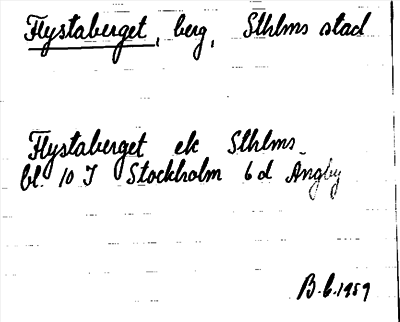 Flystaberget, berg, Sthlms stad
Flystaberget ek Sthlms
bl. 10 I Stockholm 6 d Ängby
B.b. 1959